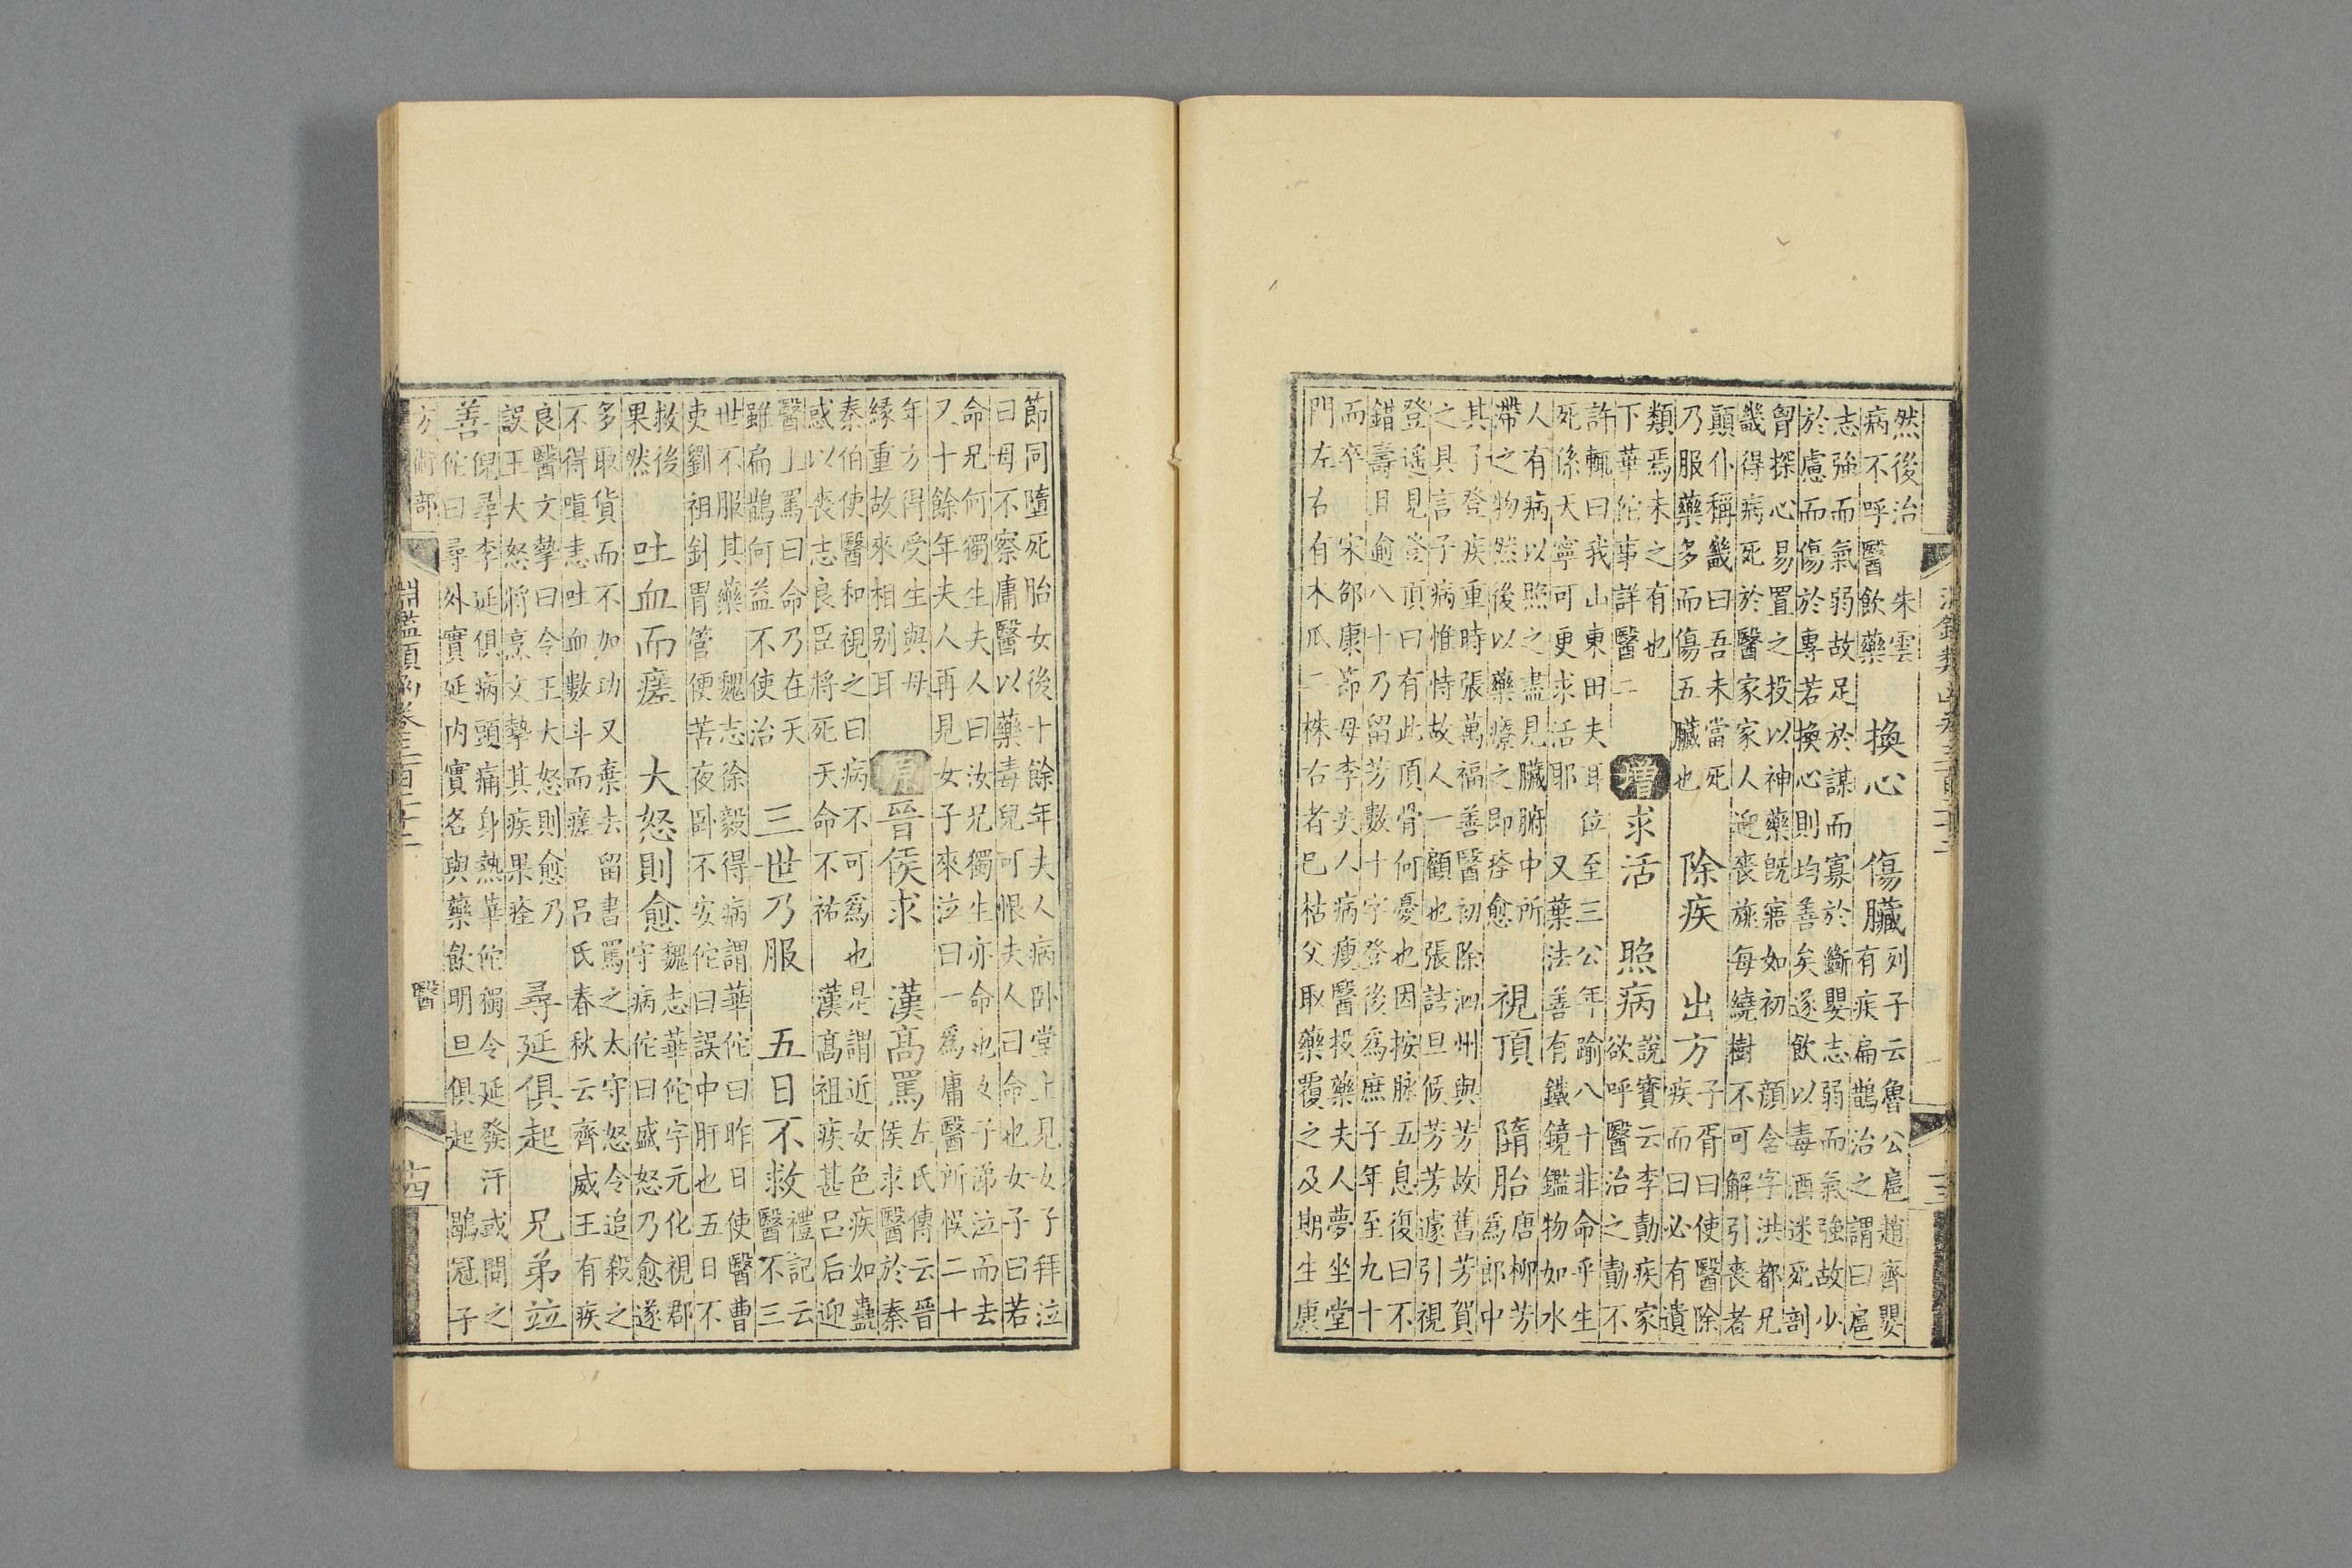 然後治 朱雲
病不呼醫飲藥
換心 傷臟
列子云魯公扈趙齊嬰
有疾扁鵲治之謂曰扈
志強而氣弱故足於謀而寡於斷嬰志弱而氣強故少
於慮而傷於專若換心則均善矣遂飲以毒酒迷死剖
胷探心易置之投以神藥旣寤如初 顏含字洪都兄
畿得病死於醫家家人迎喪旐每繞樹不可解引喪者
顛仆稱畿曰吾未當死
乃服藥多而傷五臟也
除疾 出方
子胥曰使醫除
疾而曰必有遺
類焉未之有也
下華佗事詳醫二
增求活 照病
說寶云李勣疾家
欲呼醫治之勣不
許輒曰我山東田夫耳位至三公年踰八十非命乎生
死係天寧可更求活耶 又葉法善有鐵鏡鑑物如水
人有病以照之盡見臟腑中所
帶之物然後以藥療之即痊愈
視頂 隋胎
唐柳芳
為郎中
其子登疾重時張萬福善醫初除泗州與芳故舊芳賀
之具言子病惟恃故人一顧也張詰旦候芳芳遽引視
登遥見登頂曰有此頂骨何憂也因按脉五息復曰不
錯壽且逾八十乃留芳數十字登後為庶子年至九十
而卒 宋邵康節母李夫人病瘦醫投藥夫人夢坐堂
門左右有木瓜二株右者已枯父取藥覆之及期生康
節同墮死胎女後十餘年夫人病卧堂上見女子拜泣
曰母不察庸醫以藥毒兒可恨夫人曰命也女子曰若
命兄何獨生夫人曰汝兄獨生亦命也女子涕泣而去
又十餘年夫人再見女子來泣曰一為庸醫所悞二十
年方得受生與母
緣重故來相别耳
原晉侯求 漢高罵
左氏傳云晉
侯求醫於秦
秦伯使醫和視之曰病不可爲也是謂近女色疾如蠱
惑以喪志良臣將死天命不祐 漢髙祖疾甚吕后迎
醫上罵曰命乃在天
雖扁鵲何益不使治
三世乃服 五日不救
禮記云
醫不三
世不服其藥 魏志徐毅得病謂華佗曰昨日使醫曹
吏劉祖針胃管 便苦夜卧不安佗曰誤中肝也五日不
救後
果然
吐血而瘥 大怒則愈
魏志華佗字元化視郡
守病佗曰盛怒乃愈遂
多取貨而不加功又棄去留書罵之太守怒令追殺之
不得嗔恚吐血數斗而瘥 吕氏春秋云齊威王有疾
良醫文摯曰令王大怒則愈乃
誤王大怒將烹文摯其疾果痊
尋延俱起 兄弟竝
善
倪尋李延俱病頭痛身熱華佗獨令延發汗或問之
佗曰尋外實延内實各與藥飲明旦俱起 鶡冠子
方術部
淵鑑類函卷三百二十二
醫